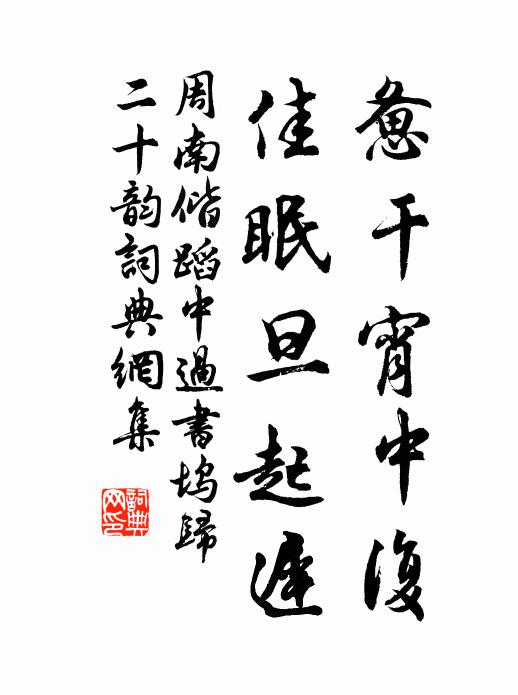 惫干宵中復
佳眠旦起遲
周南偕蹈中過書塢歸
二十韵詞典網集
詞典
网印